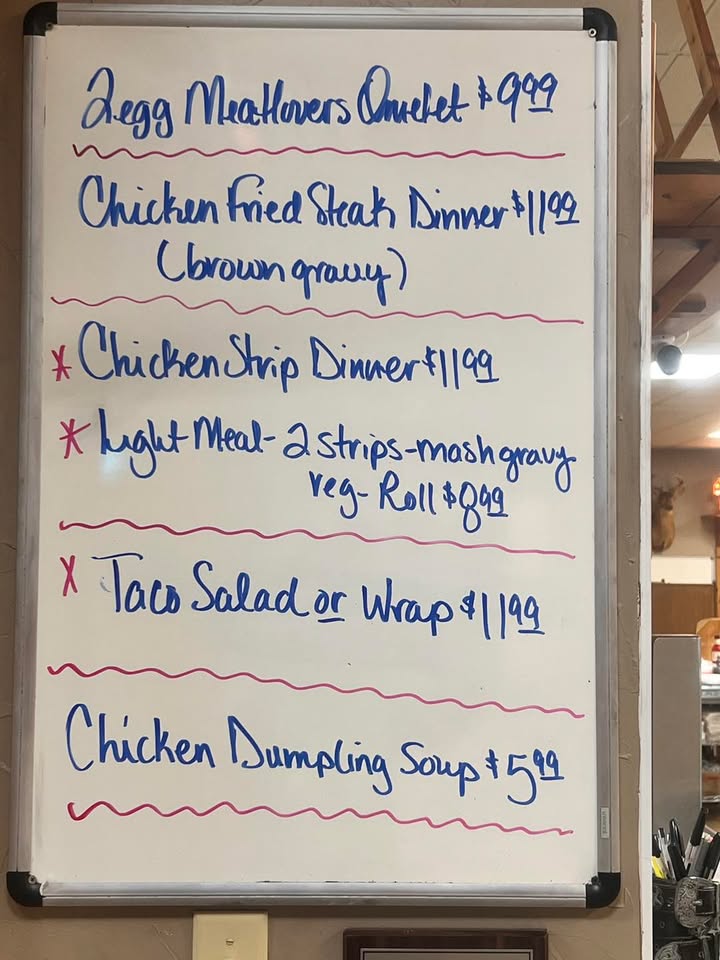 2egg Meatlovers Omelet $9.99
Chicken Fried Steak Dinner $11.99
(brown gravy)
* Chicken Strip Dinner $11.99
* Light Meal - 2 strips - mash gravy
veg - Roll $8.99
X Taco Salad or Wrap $11.99
Chicken Dumpling Soup $5.99